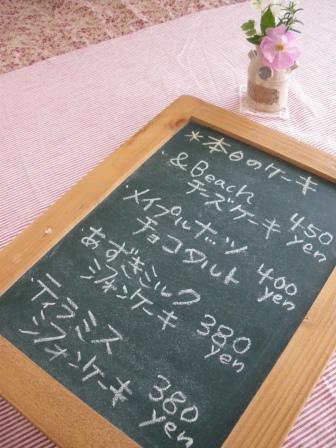 *本日のケーキ
・&Beach
チーズケーキ 450 yen
・メイプルナッツ
チョコタルト 400 yen
・あずきミルク
シフォンケーキ 380 yen
・ティラミス
シフォンケーキ 380 yen